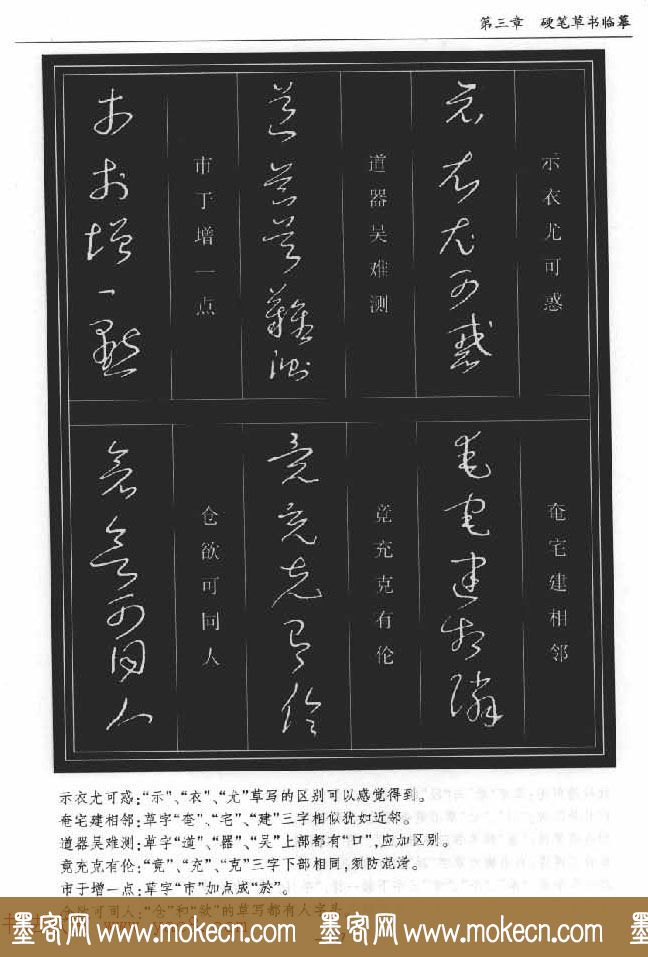 第三章 硬笔草书临摹
示衣尤可惑
道器吴难测
市于增一点
奄宅建相邻
竟充克有伦
仓欲可同人
示衣尤可惑:“示”、“衣”、“尤”草写的区别可以感觉得到。
奄宅建相邻:草字“奄”、“宅”、“建”三字相似犹如近邻。
道器吴难测:草字“道”、“器”、“吴”上部都有“口”,应加区别。
竟充克有伦:“竟”、“充”、“克”三字下部相同,须防混淆。
市于增一点:草字“市”加点成“於”。
仓欲可同人:“仓”和“欲”的草写都有人字头
墨客网 www.mokecn.com 墨客网 www.mokecn.com 墨客网